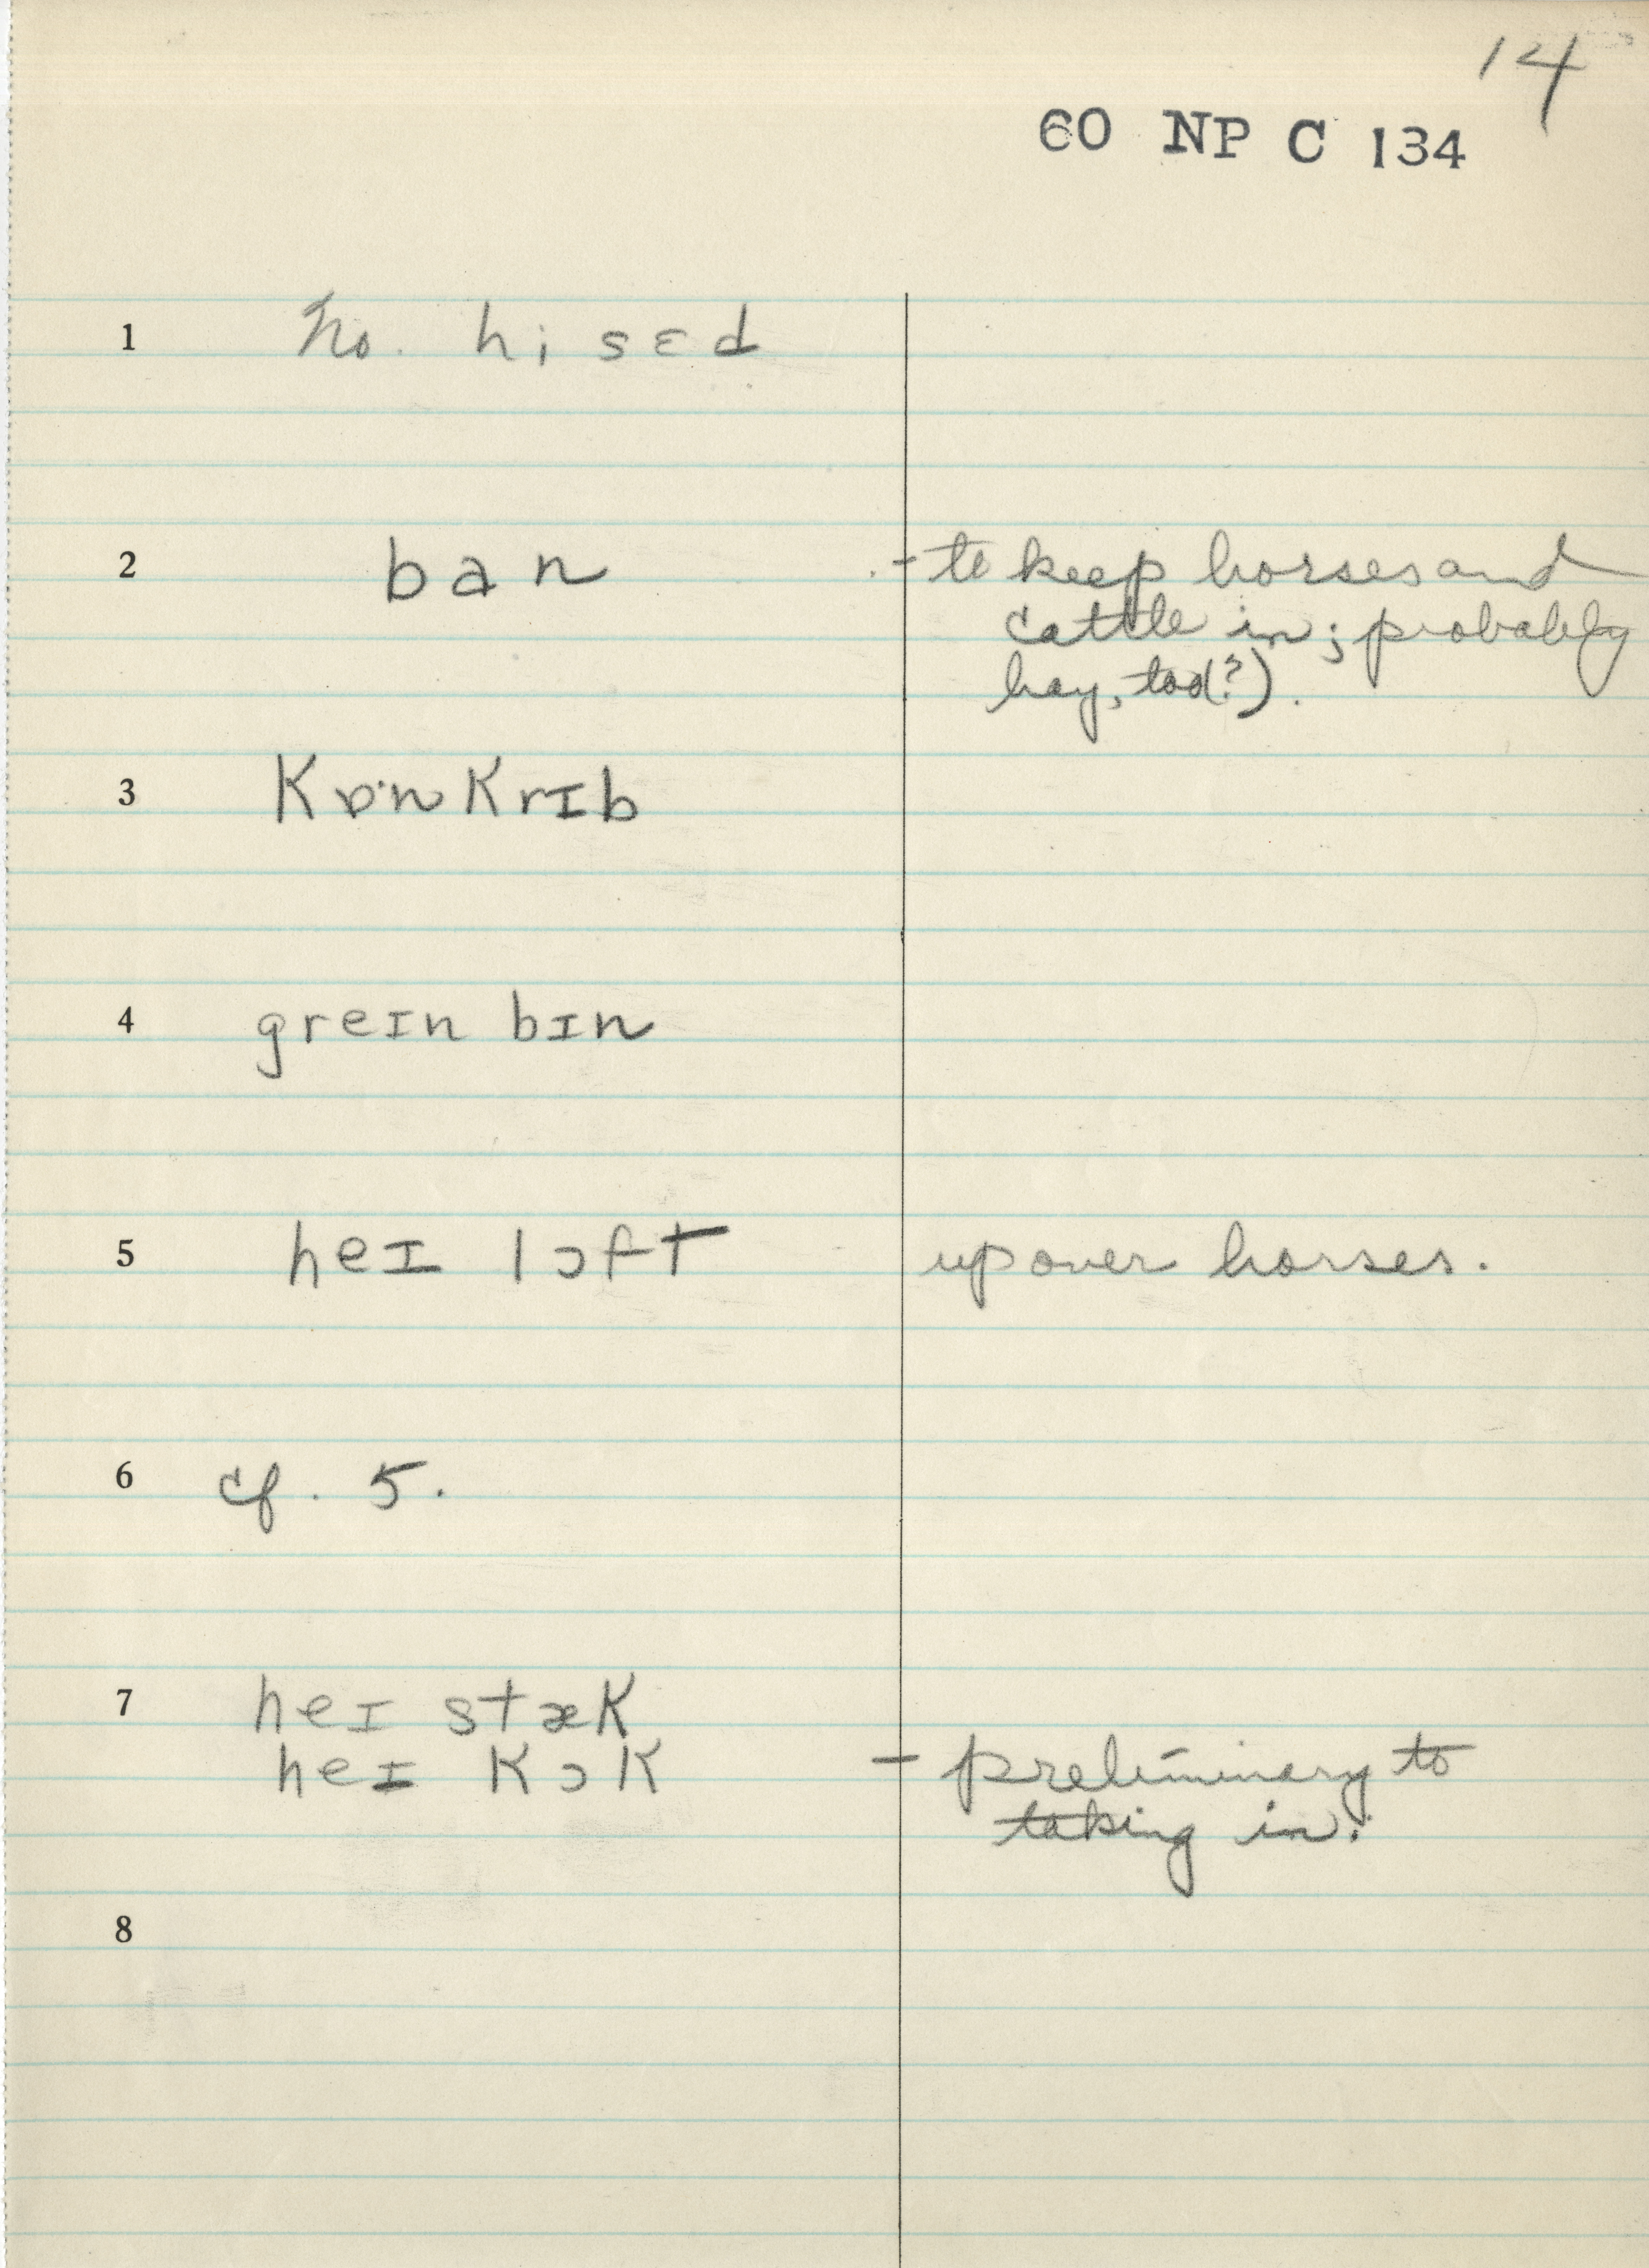 14
60 NP C 134
1 No. hi sɛd
2 ban - to keep horses and
cattle in; probably
hay, too(?).
3 Kɒ·n KrIb
4 greIn bIn
5 heI lɔft up over horses.
6 cf. 5.
7 heI stæK
heI KɔK - preliminary to
taking in.
8